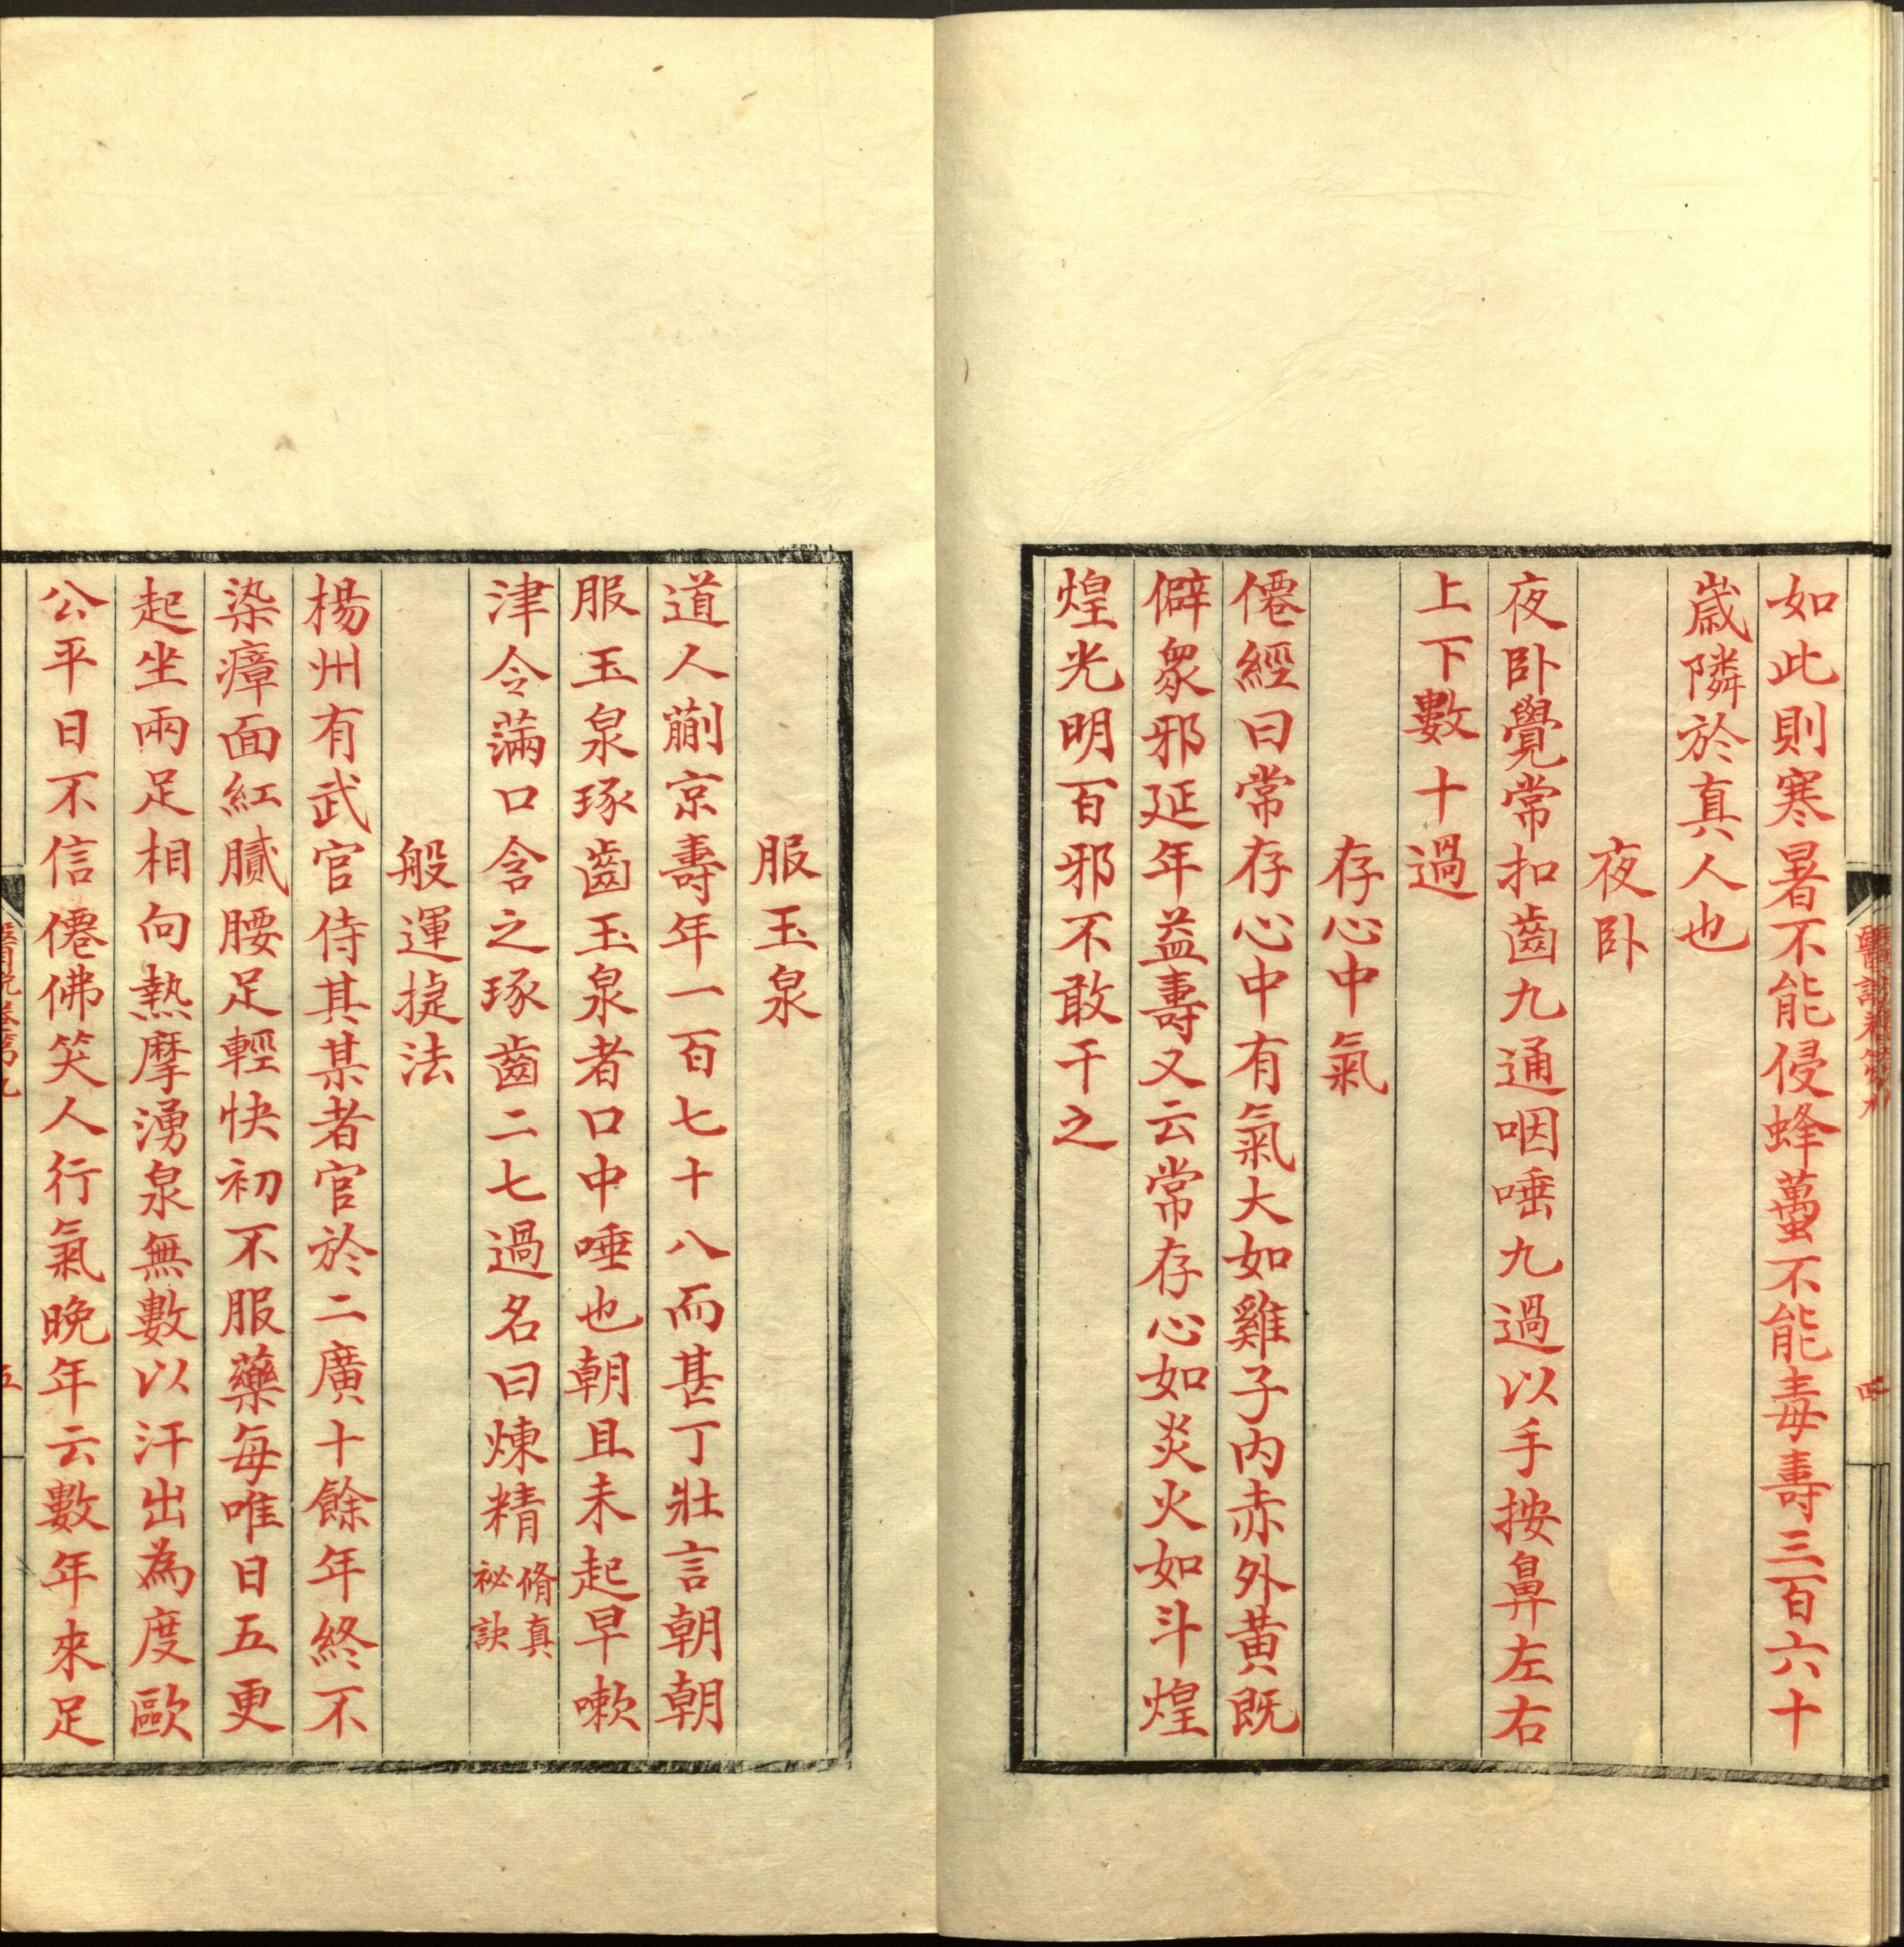 如此則寒暑不能侵蜂蠆不能毒壽三百六十
歲隣於真人也
夜卧
夜卧覺常扣齒九通咽唾九過以手按鼻左右
上下數十過
存心中氣
僊經曰常存心中有氣大如雞子內赤外黃既
僻衆邪延年益壽又云常存心如炎火如斗煌
煌光明百邪不敢干之
服玉泉
道人蒯京壽年一百七十八而甚丁壯言朝朝
服玉泉琢齒玉泉者口中唾也朝且未起早嗽
津令滿口含之琢齒二七過名曰煉精脩真祕訣
般運捷法
楊州有武官侍其某者官於二廣十餘年終不
染瘴面紅膩腰足輕快初不服藥每唯日五更
起坐兩足相向熱摩湧泉無數以汗出為度歐
公平日不信僊佛笑人行氣晚年云數年來足
五